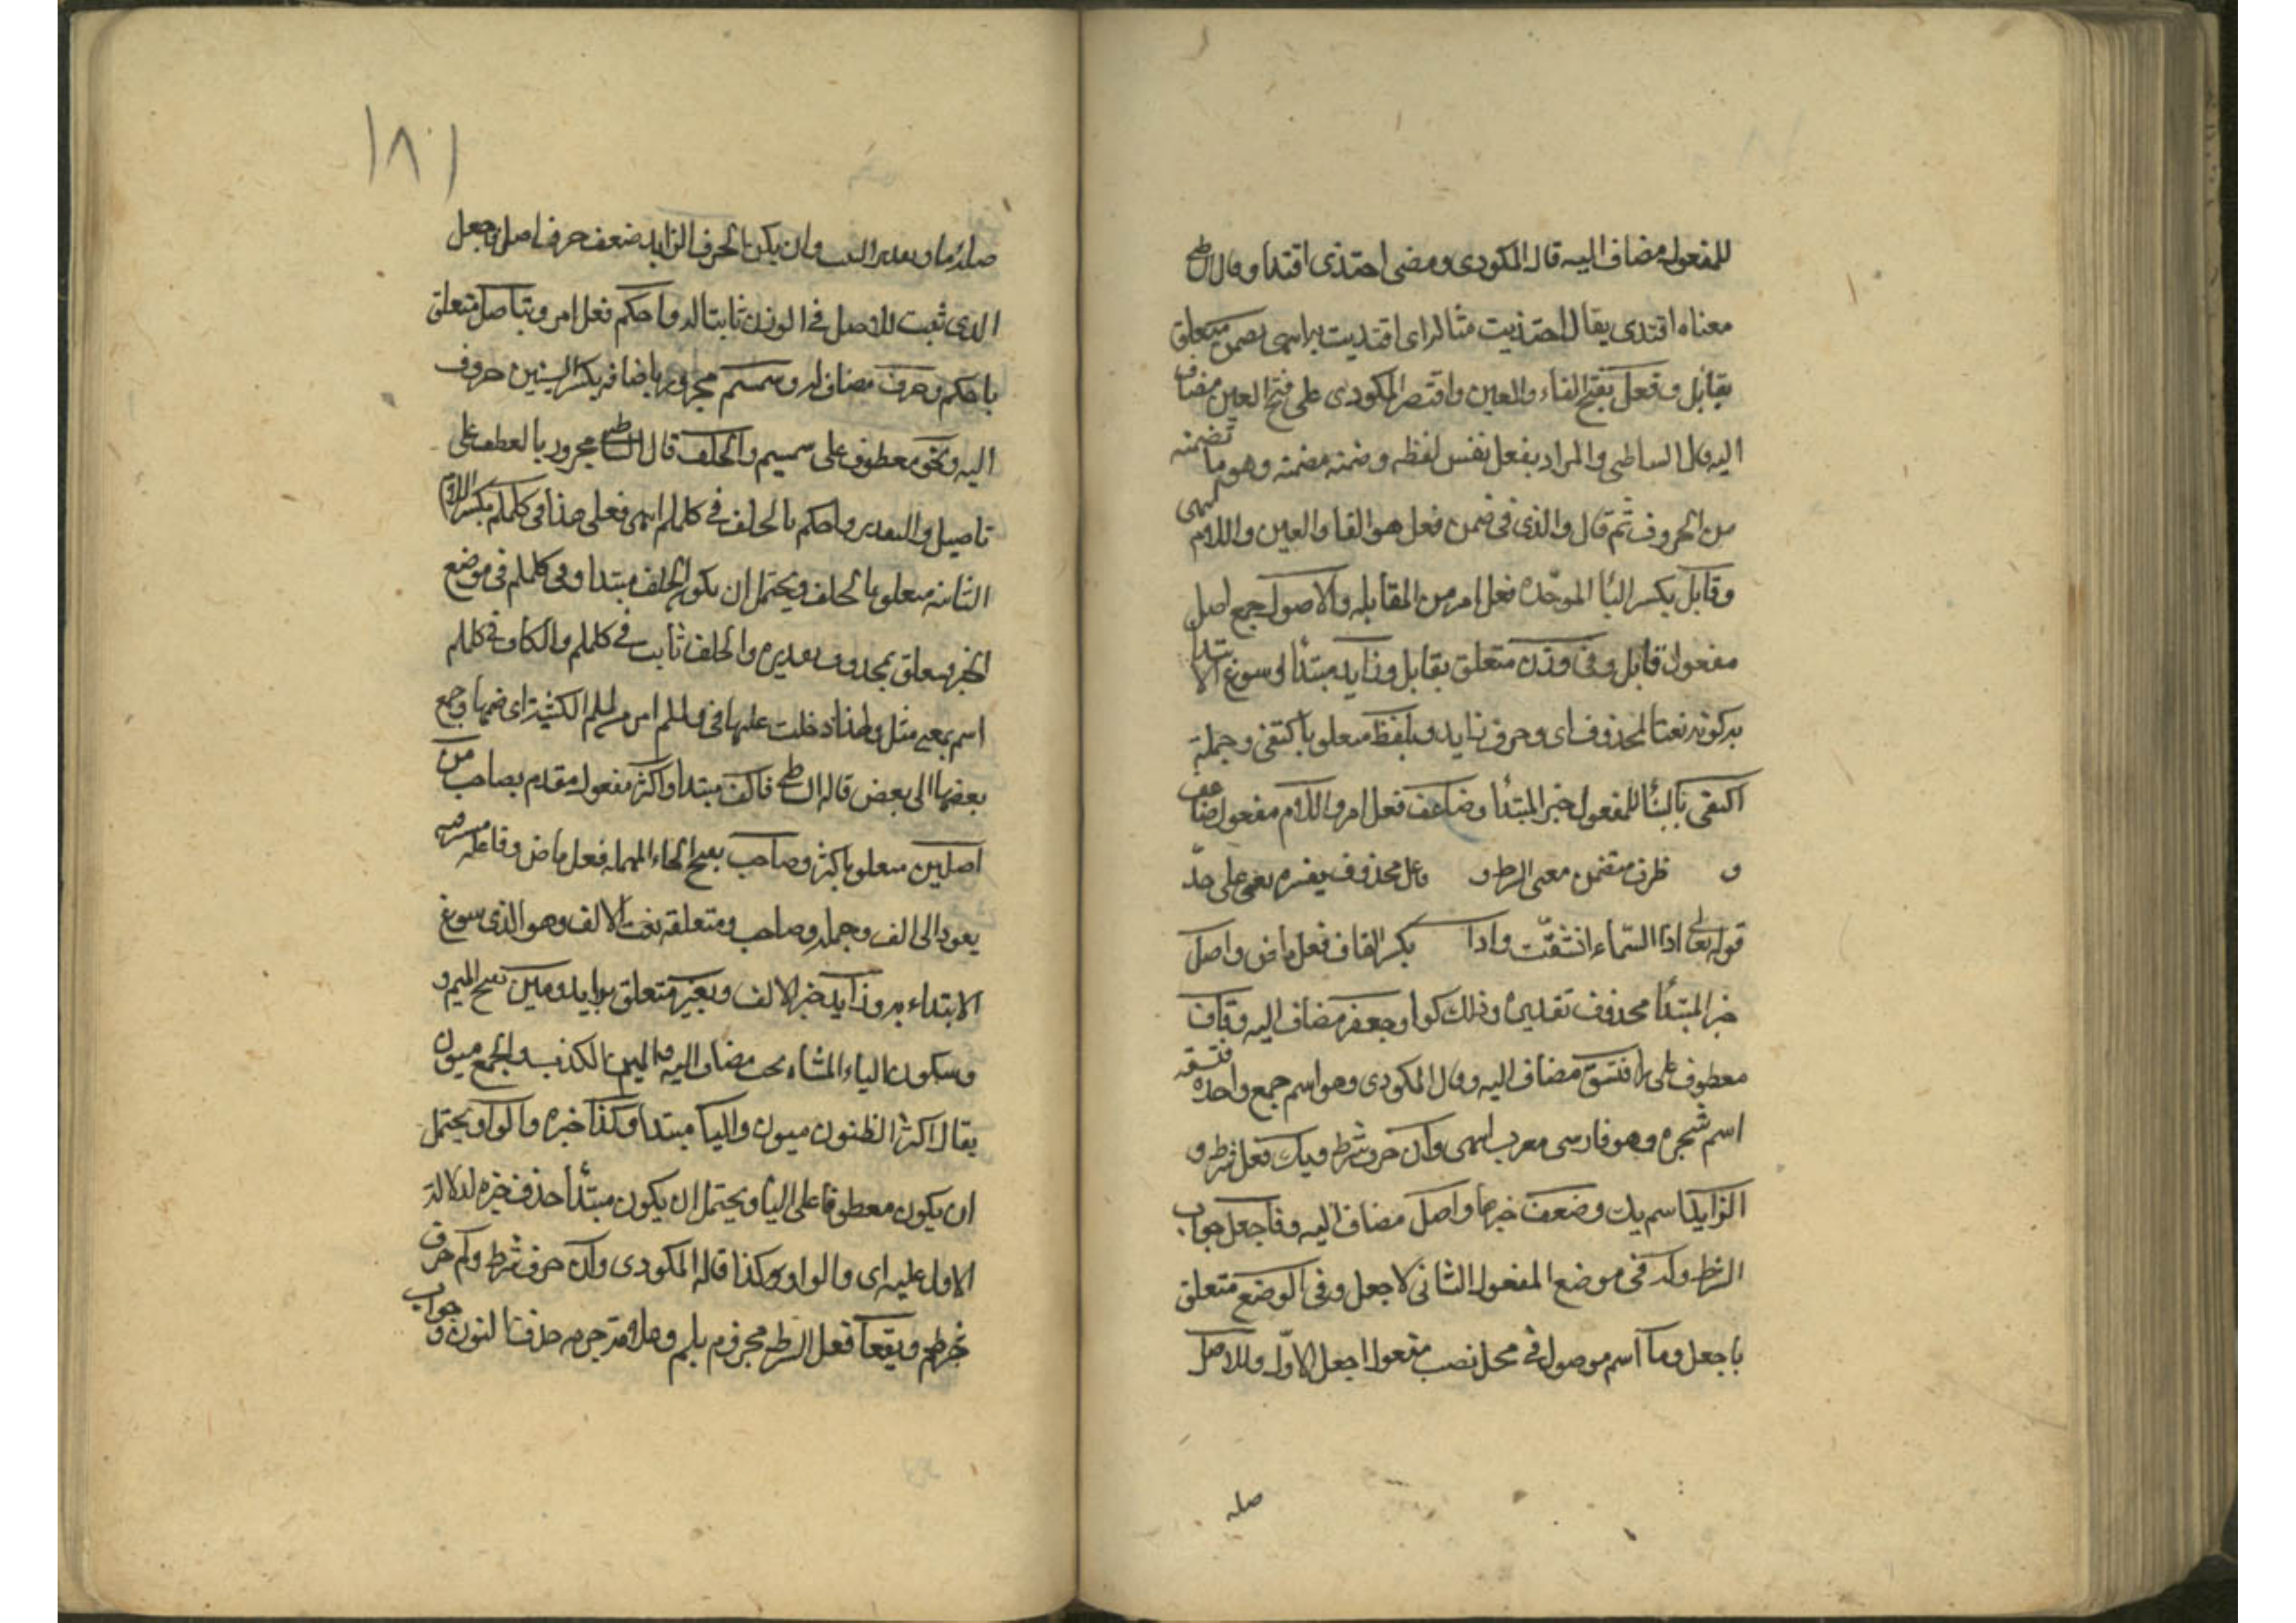 للمفعول مضاف اليه قال المكودى ومضى احتذى اقتدا وقال الشاطبى
معناه اقتدى يقال احتذيت مثاله اى اقتديت به انتهى بضمن متعلق
بقابل وفعل بفتح الفاء والعين واقتصر المكودى على فتح العين مضاف
اليه قال الشاطبى والمراد بفعل نفس لفظه وضمنه مضمنه وهو ما تضمنه
من الحروف ثم قال والذى فى ضمن فعل هو الفا والعين واللام انتهى
وقابل بكسر البأ الموحّده فعل امر من المقابله والاصول جمع اصل
مفعول قابل وفى وزن متعلق بقابل وزايد مبتدأ سوغ الابتدا
به كونه نعتا لمحذوف اى وحرف زايد وبلفظ متعلق باكتفى وجملة
اكتفى بالبنأ للمفعول خبر المبتدأ وضاعف فعل امر واللام مفعول ضاعف
و ظرف متضمن معنى الشرط و محذوف يفسره بقى على حدّ
قوله تعالى اذا السّماء انشقّت واذا بكسر القاف فعل ماض واصل
خبر المبتدأ محذوف تقديره وذلك كوا وجعفر مضاف اليه وقاف
معطوف على را فستق مضاف اليه وقال المكودى وهو اسم جمع واحده فستقه
اسم شجره وهو فارسى معرب انتهى وان حرف شرط ويك فعل شرط و
الزايد اسم يك وضعف خبرها واصل مضاف اليه وفاجعل جواب
الشرط وله فى موضع المفعول الثانى لاجعل وفى الوضع متعلق
باجعل وما اسم موصول فى محل نصب مفعول اجعل الاوّل وللاصل
صله
١٨١
صلة ما وتقدير البيت وان يكن الحرف الزايد ضعف حرف اصل فاجعل
الذى ثبت للاصل فى الوزن ثابتا له واحكم فعل امر وبتاصل متعلق
باحكم وحروف مضاف له وسمسم مجرور باضافه بكسر السينين حروف
اليه ونحوه معطوف على سمسم والخلف قال الشاطبى مجرور بالعطف على
تاصيل والتقدير واحكم بالخلف فى كلملم انتهى فعلى هذا فى كلملم بكسر اللام
الثانيه متعلق بالخلف ويحتمل ان يكون الخلف مبتدا وفى كلملم فى موضع
الخبر متعلق بمحذوف تقديره والخلف ثابت فى كلملم والكاف فى كلملم
اسم بمعنى مثل ولهذا دخلت عليها فى ولملم امر من لملم الكثيبة اى ضمها وجمع
بعضها الى بعض قاله الشاطبى فالف مبتدا واكثر مفعول مقدم بصاحب من
اصلين متعلق باكثر وصاحب بفتح الحاء المهمله فعل ماض وفاعله مستتر فيه
يعود الى الف وجملة وصاحب ومتعلقه نعت لالف وهو الذى سوغ
الابتداء به وزايد خبر الالف وبغير متعلق بزايد ومين بفتح الميم و
وسكون الياء المثناه تحت مضاف اليه والمين الكذب والجمع ميون
يقال اكثر الظنون ميون واليا مبتدا وكذا خبره والواو يحتمل
ان يكون معطوفا على اليا ويحتمل ان يكون مبتدأ حذف خبره لدلالة
الاول عليه اى والواو وكذا قاله المكودى وان حرف شرط ولم حرف
جزم ويقعا فعل الشرط مجزوم بلم وعلامة جزمه حذف النون وجواب